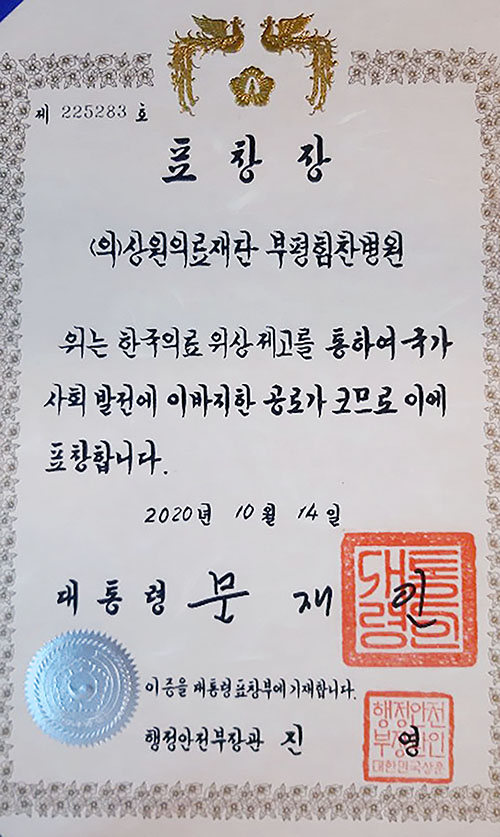 제 225283 호
표창장
(의)상원의료재단 부평힘찬병원
위는 한국의료 위상 제고를 통하여 국가
사회 발전에 이바지한 공로가 크므로 이에
표창합니다.
2020년 10월 14일
대통령 문재인
대통령의인
이 증을 대통령표창부에 기재합니다.
행정안전부장관 진영
행정안전
부장관인